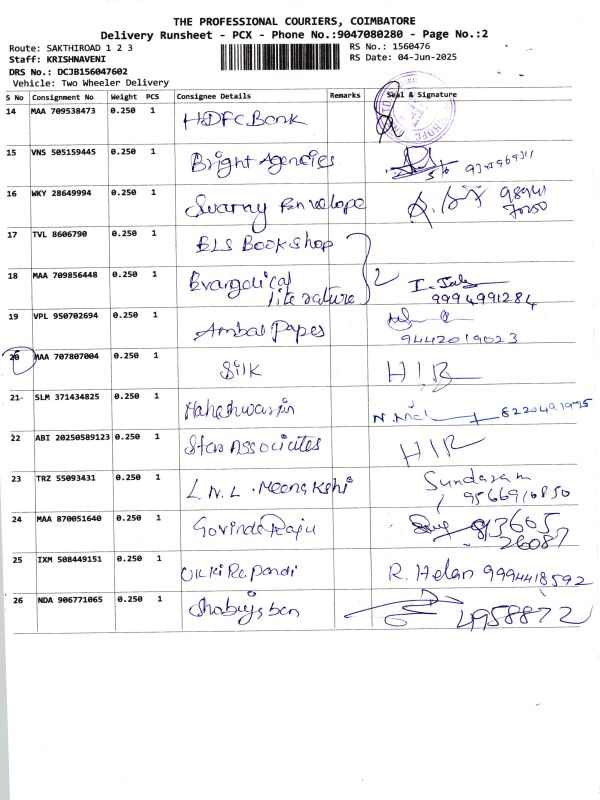 THE PROFESSIONAL COURIERS, COIMBATORE
Delivery Runsheet - PCX - Phone No.:9047080280 - Page No.:2
Route: SAKTHIROAD 1 2 3
RS No.: 1560476
Staff: KRISHNAVENI
RS Date: 04-Jun-2025
DRS No.: DCJB156047602
Vehicle: Two Wheeler Delivery
S No Consignment No Weight PCS Consignee Details Remarks Seal & Signature
14 MAA 709538473 0.250 1 HDFC Bank
15 VNS 505159445 0.250 1 Bright Agencies
16 WKY 28649994 0.250 1 Swarny Envelope 98941
70250
17 TVL 8606790 0.250 1 ELS Bookshop
18 MAA 709856448 0.250 1 Evangelical
literature 2 9994991284
19 VPL 950702694 0.250 1 Ambal Papes 9442019023
20 MAA 707807004 0.250 1 Silk H/R
21 SLM 371434825 0.250 1 Maheshwarin 8220491995
22 ABI 20250589123 0.250 1 Star Associates H/R
23 TRZ 55093431 0.250 1 L.N.L. Meenakshi Sundaram
9566910850
24 MAA 870051640 0.250 1 Govinda Raju 93605
26087
25 IXM 508449151 0.250 1 R. Helan 9994418592
26 NDA 906771065 0.250 1 4958872